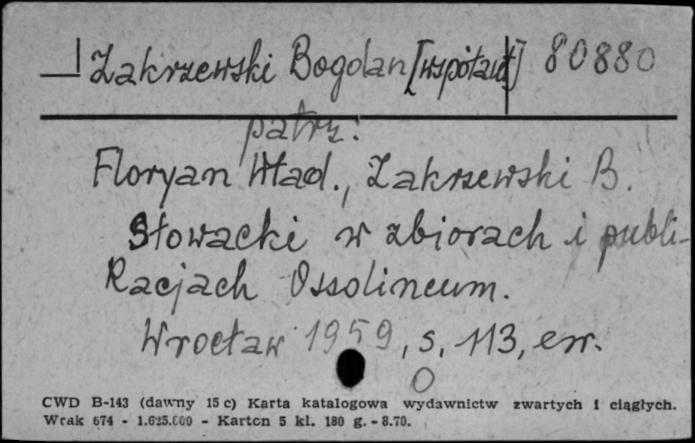 Zakrzewski Bogdan [współaut] 80880
patrz:
Floryan Wład., Zakrzewski B.
Słowacki w zbiorach i publi-
kacjach Ossolineum.
Wrocław 1959, s. 113, err.
CWD B-143 (dawny 15 c) Karta katalogowa wydawnictw zwartych i ciągłych.
Wrak 674 - 1.625.000 - Karton 5 kl. 180 g. - 8.70.